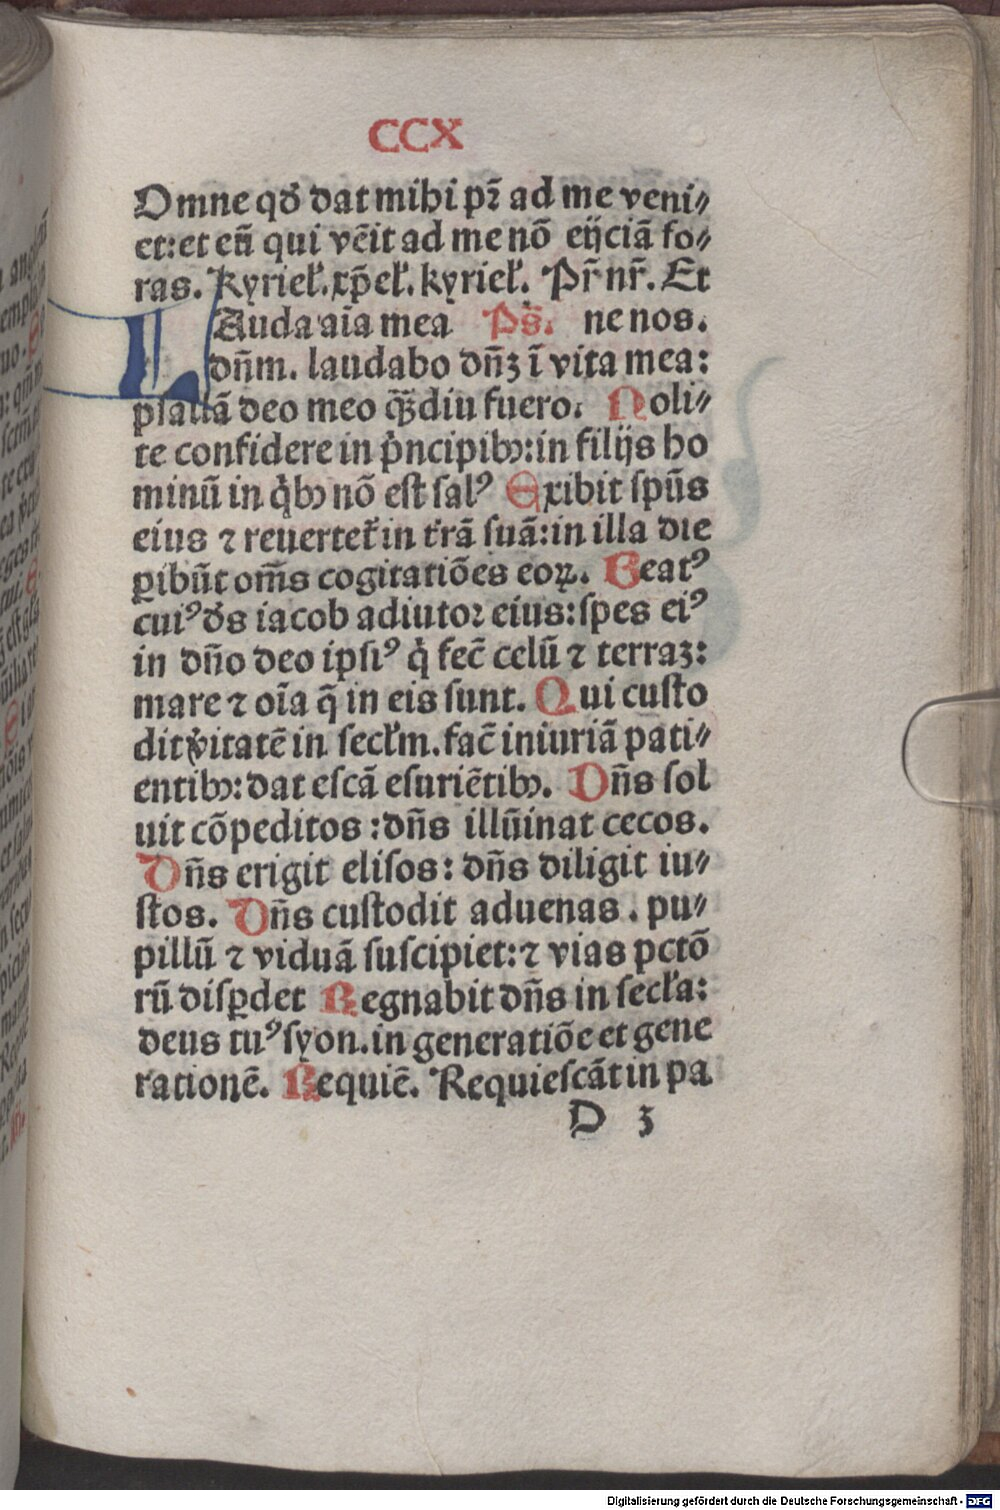 CCX
Omne qđ dat mihi pr̃ ad me veni⸗
et: et eū qui vēit ad me nō eijciā fo⸗
ras. kyrieł. xp̄eł. kyrieł. Pr̃ nr̃. Et
LAuda aīa mea Ps̄. ne nos.
dñm. laudabo dñȝ ī vita mea:
psallā deo meo q̄̈diu fuero. Noli⸗
te confidere in pͥncipibꝰ: in filijs ho
minū in qͥbꝰ nō est salꝰ Exibit spūs
eius ⁊ reuertet̃ in t̃rā suā: in illa die
ꝑibūt om̄s cogitatiōes eoꝝ. Beatꝰ
cuiꝰ đs iacob adiutoꝛ eius: spes eiꝰ
in dño deo ipsiꝰ qͥ fec̄ celū ⁊ terraȝ:
mare ⁊ oīa q̄ in eis sunt. Qui custo
dit v̾itatē in secl̃m. fac̄ iniuriā pati⸗
entibꝰ: dat escā esuriētibꝰ. Dñs sol
uit cōpeditos: dñs illūinat cecos.
Dñs erigit elisos: dñs diligit iu⸗
stos. Dñs custodit aduenas. pu⸗
pillū ⁊ viduā suscipiet: ⁊ vias pctō
rū disꝑdet Regnabit dñs in secl̃a:
deus tuꝰ syon. in generatiōe et gene
rationē. Requiē. Requiescāt in pa
D 3
Digitalisierung gefördert durch die Deutsche Forschungsgemeinschaft - DFG